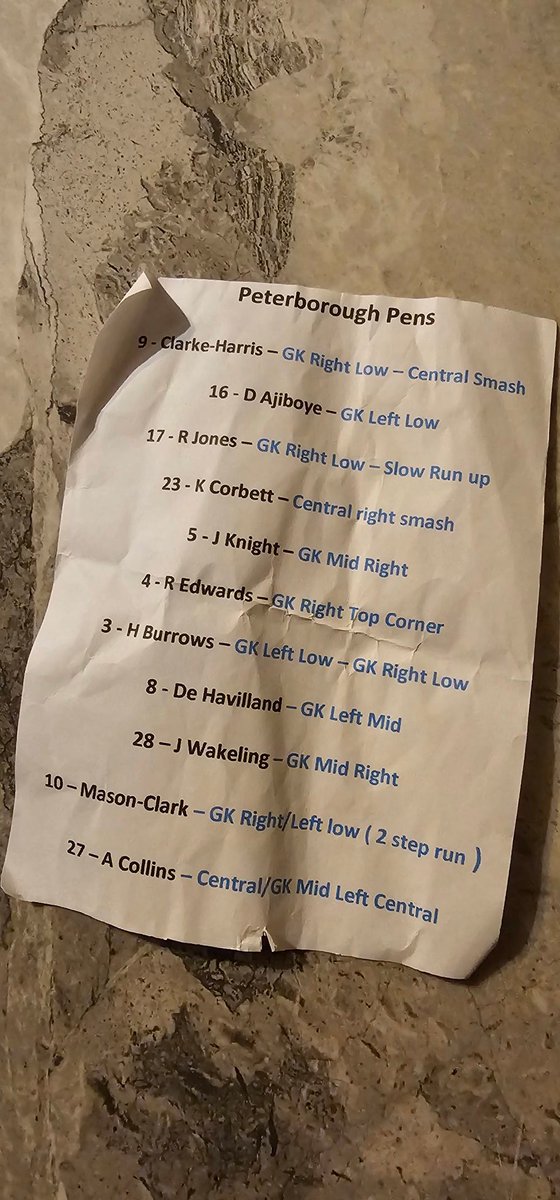 Peterborough Pens
9 - Clarke-Harris – GK Right Low – Central Smash
16 - D Ajiboye – GK Left Low
17 - R Jones – GK Right Low – Slow Run up
23 - K Corbett – Central right smash
5 - J Knight – GK Mid Right
4 - R Edwards – GK Right Top Corner
3 - H Burrows – GK Left Low – GK Right Low
8 - De Havilland – GK Left Mid
28 – J Wakeling – GK Mid Right
10 – Mason-Clark – GK Right/Left low ( 2 step run )
27 – A Collins – Central/GK Mid Left Central